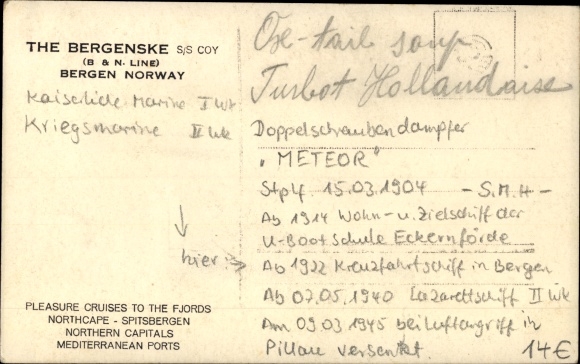 THE BERGENSKE S/S COY
(B & N. LINE)
BERGEN NORWAY
Kaiserliche Marine I Wk
Kriegsmarine II Wk
hier →
PLEASURE CRUISES TO THE FJORDS
NORTHCAPE - SPITSBERGEN
NORTHERN CAPITALS
MEDITERRANEAN PORTS
Ox-tail soup
Turbot Hollandaise
Doppelschraubendampfer
"METEOR"
Stplf 15.03.1904 - S.M.H -
Ab 1914 Wohn- u. Zielschiff der
U-Boot Schule Eckernförde
Ab 1922 Kreuzfahrtschiff in Bergen
Ab 07.05.1940 Lazarettschiff II Wk
Am 09.03.1945 bei Luftangriff in
Pillau versenkt 14€